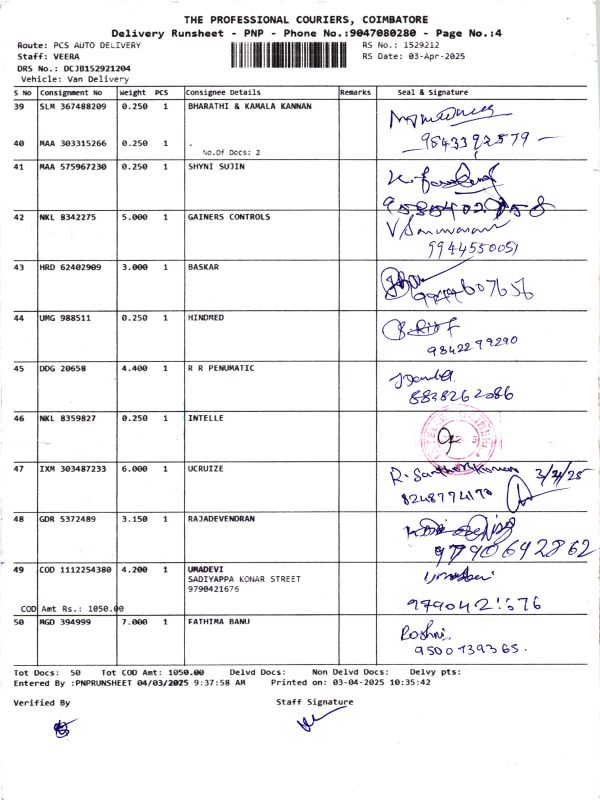 THE PROFESSIONAL COURIERS, COIMBATORE
Delivery Runsheet - PNP - Phone No.:9047080280 - Page No.:4
Route: PCS AUTO DELIVERY RS No.: 1529212
Staff: VEERA RS Date: 03-Apr-2025
DRS No.: DCJB152921204
Vehicle: Van Delivery
S No Consignment No Weight PCS Consignee Details Remarks Seal & Signature
39 SLM 367488209 0.250 1 BHARATHI & KAMALA KANNAN
40 MAA 303315266 0.250 1 . 9843392579
No.Of Docs: 2
41 MAA 575967230 0.250 1 SHYNI SUJIN
42 NKL 8342275 5.000 1 GAINERS CONTROLS
9944550051
43 HRD 62402909 3.000 1 BASKAR
44 UMG 988511 0.250 1 HINDMED
9842299290
45 DDG 20658 4.400 1 R R PENUMATIC
8838262086
46 NKL 8359827 0.250 1 INTELLE
47 IXM 303487233 6.000 1 UCRUIZE R. Santhosh Kumar 3/4/25
8248774170
48 GDR 5372489 3.150 1 RAJADEVENDRAN
9790692862
49 COD 1112254380 4.200 1 UMADEVI
SADIYAPPA KONAR STREET
9790421676
COD Amt Rs.: 1050.00
50 MGD 394999 7.000 1 FATHIMA BANU Roshni.
9500739365.
Tot Docs: 50 Tot COD Amt: 1050.00 Delvd Docs: Non Delvd Docs: Delvy pts:
Entered By :PNPRUNSHEET 04/03/2025 9:37:58 AM Printed on: 03-04-2025 10:35:42
Verified By Staff Signature